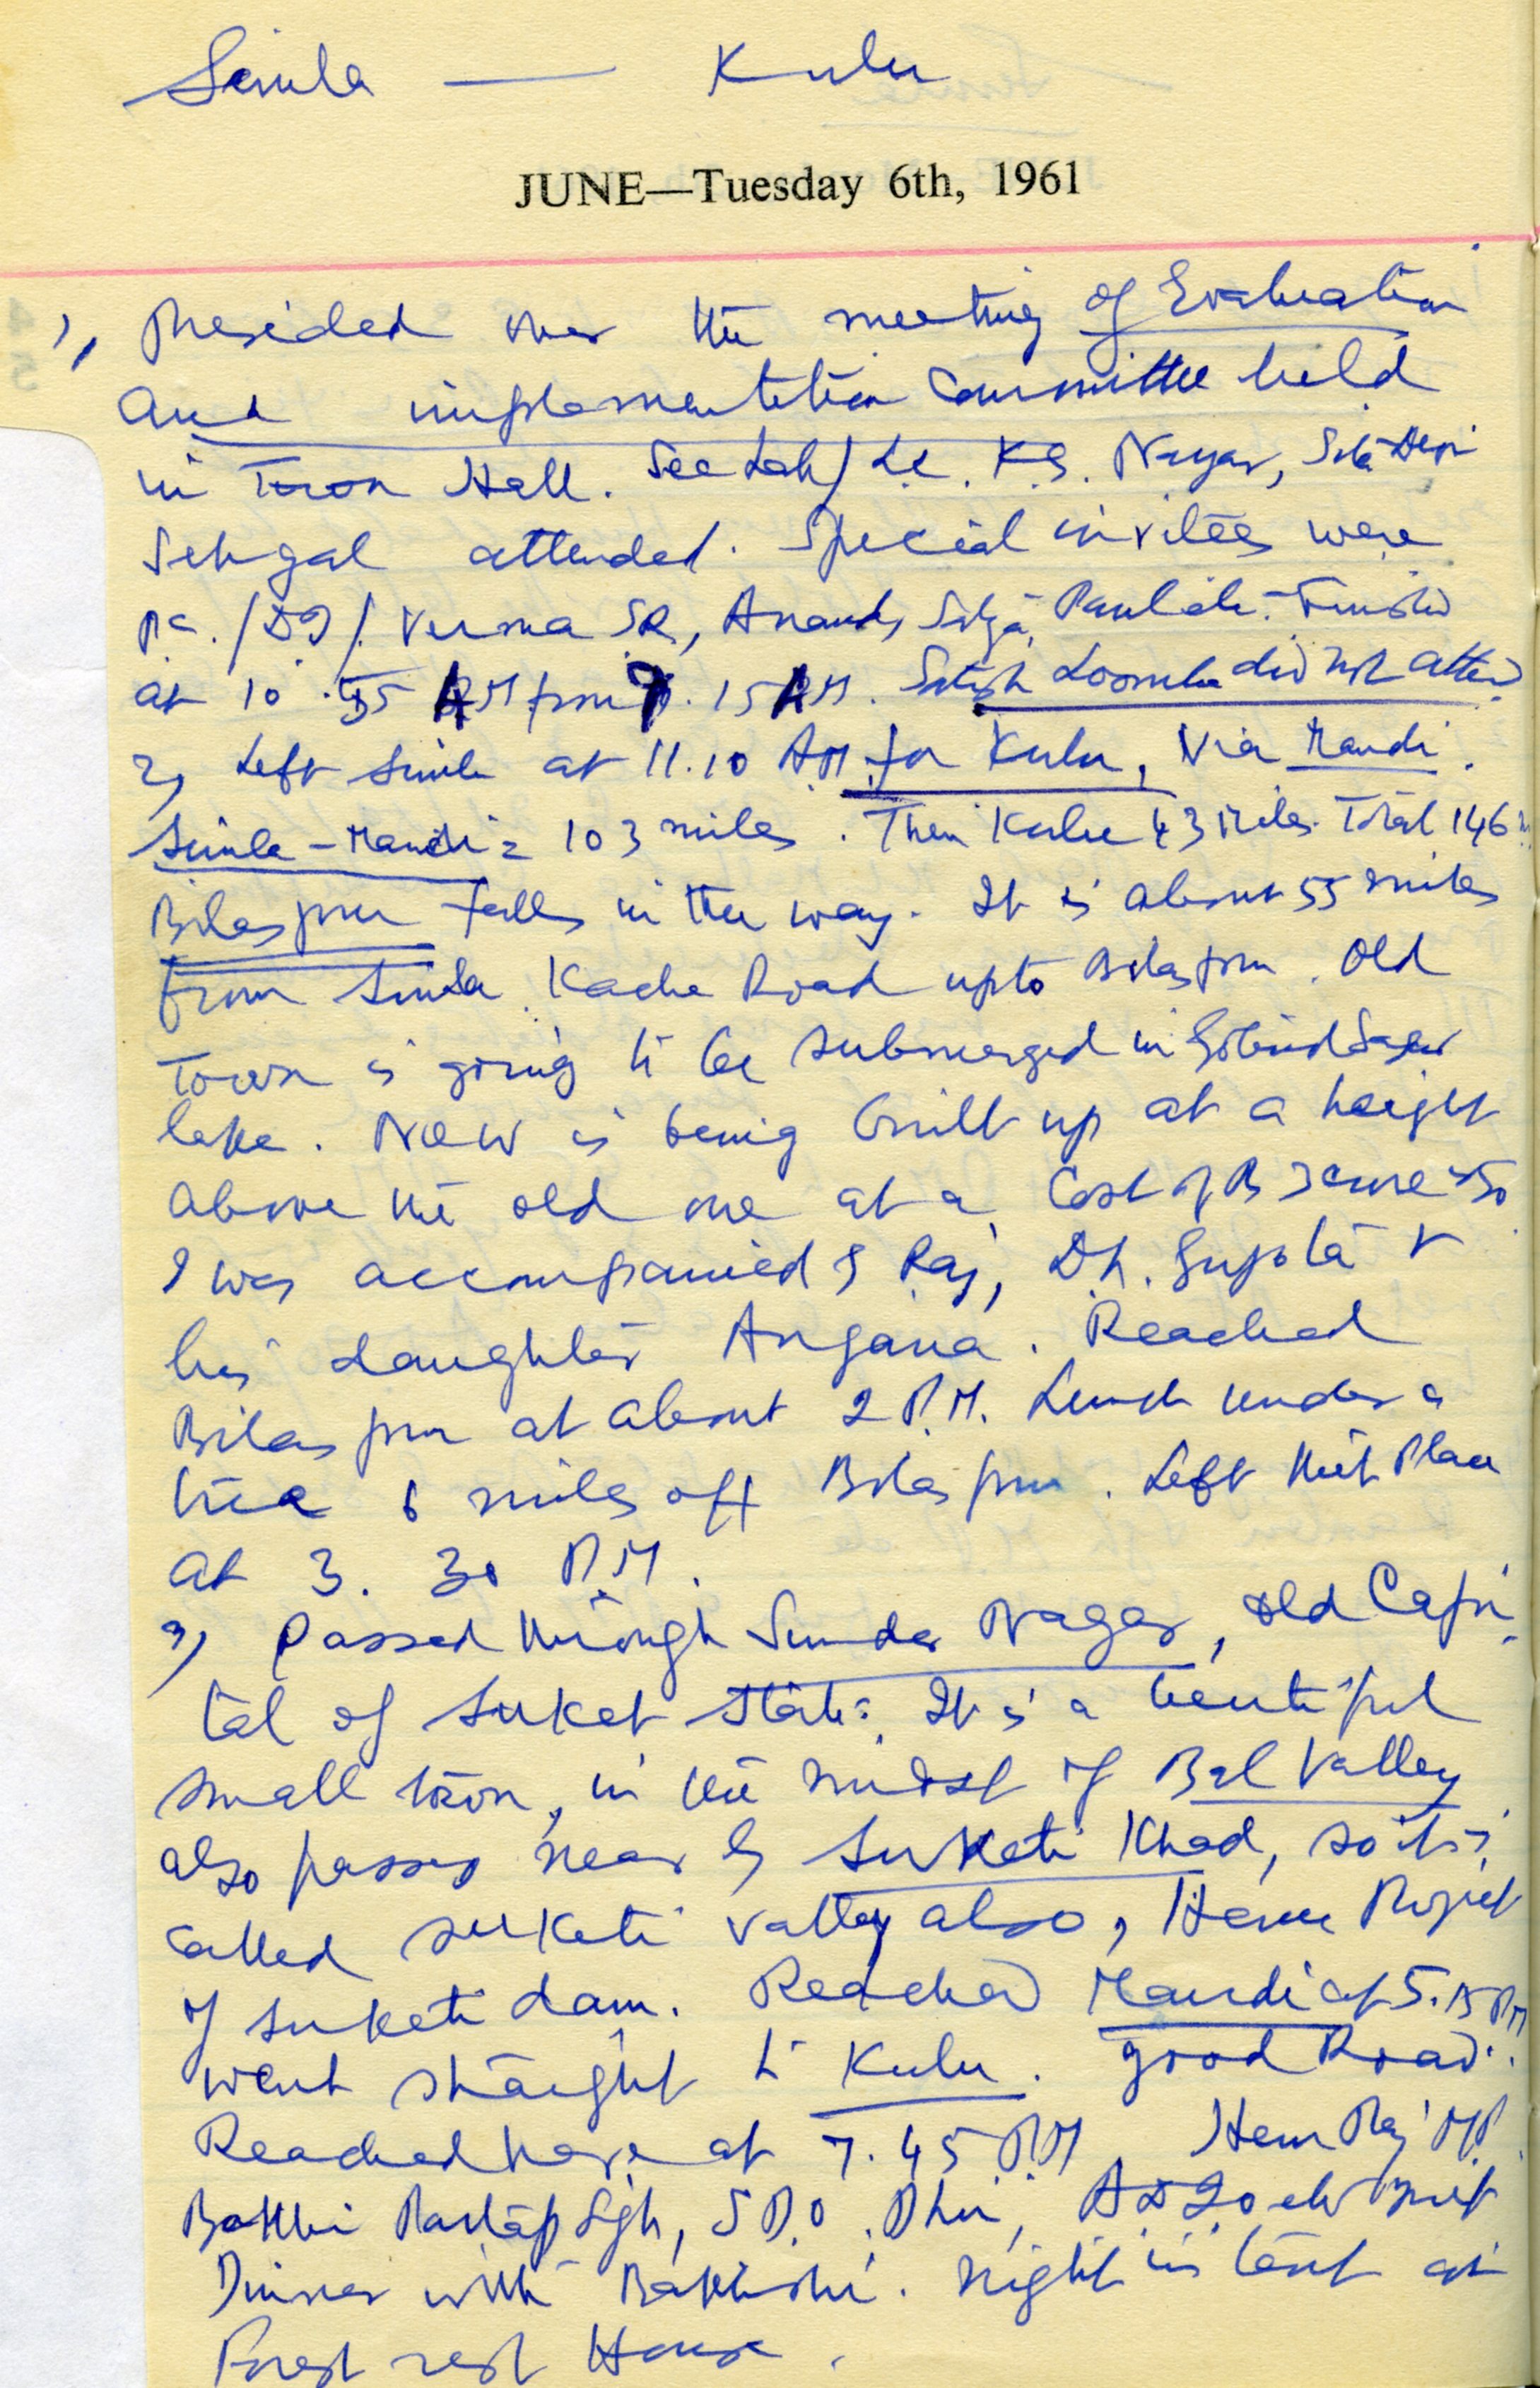 Simla — Kulu
JUNE—Tuesday 6th, 1961
1, Presided over the meeting of Evaluation
and implementation Committee held
in Town Hall. K.S. Nayar, Sita Devi
Sehgal attended. Special invitees were
Verma SR, Anand, Satya,
at 10.55 AM from 9.15 AM. Satish Loomba did not attend
2, Left Simla at 11.10 AM for Kulu, Via Mandi.
Simla – Mandi = 103 miles. Then Kulu 43 Miles. Total 146
Bilaspur falls in the way. It is about 55 miles
from Simla. Kacha Road upto Bilaspur. Old
Town is going to be submerged in Gobind Sagar
lake. New is being built up at a height
above the old one at a cost of Rs 3 crore
I was accompanied by Raj, Dh. Gupta &
his daughter Anjana. Reached
Bilaspur at about 2 P.M. Lunch under a
tree 6 miles off Bilaspur. Left this Place
at 3.30 P.M.
3, Passed through Sunder Nagar, old Capi
tal of Suket State. It is a beutiful
small town, in the midst of Bal Valley
also passes near by Suketi Khad, so it is
called Suketi Valley also, Project
of Suketi dam. Reached Mandi at 5.15 PM
went straight to Kulu. good Road.
Reached here at 7.45 PM Hem Raj MP.
Bakhshi Partap Sgh, S.D.O. etc met
Dinner with Bakhshi. Night in tent at
Forest rest House.